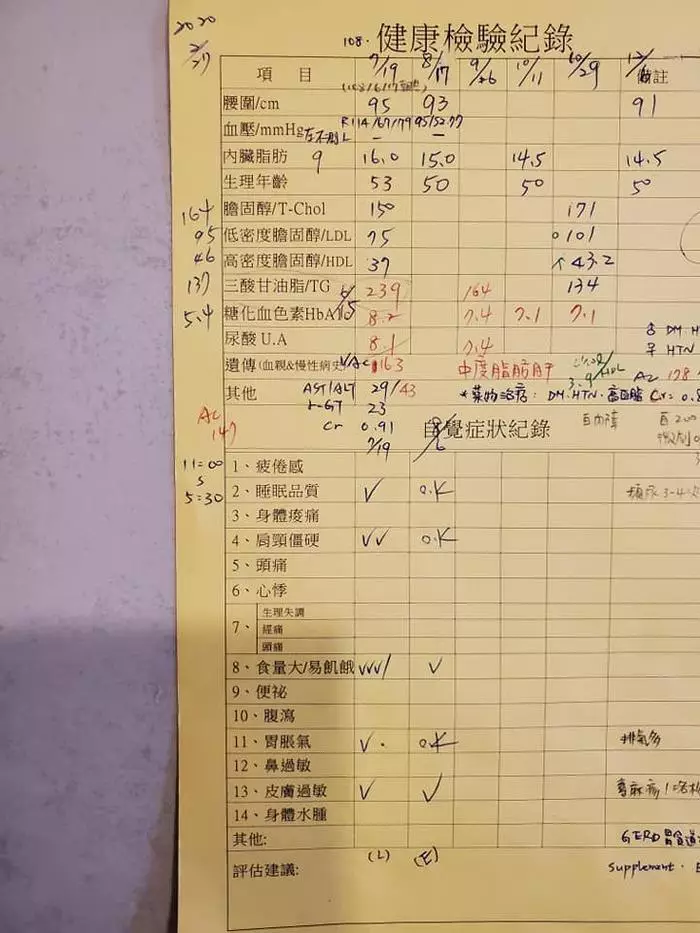 2020
2/27
108. 健康檢驗紀錄
項 目 7/19 8/17 9/26 10/11 10/29 備註
腰圍/cm 95 93 91
血壓/mmHg R114/67/79 95/52.77
L - -
內臟脂肪 9 16.0 15.0 14.5 14.5
生理年齡 53 50 50 50
164 膽固醇/T-Chol 150 171
95 低密度膽固醇/LDL 75 101
46 高密度膽固醇/HDL 37 ↑43.2
137 三酸甘油脂/TG 239 164 134
5.4 糖化血色素HbA1c 8.2 7.4 7.1 7.1
尿酸 U.A 8.1 7.4 DM
HTN
遺傳(血親&慢性病史) AC 163 中度脂肪肝 HDL AC 178
3.9
其他 AST/ALT 29/43 *藥物治療: DM.HTN.高血脂 Cr=0.8
r-GT 23 白內障
AC Cr 0.91 自覺症狀紀錄
147 7/19 8/6
11=00 1、疲倦感
5 2、睡眠品質 ✓ O.K 頻尿3-4次
5=30
3、身體痠痛
4、肩頸僵硬 ✓✓ O.K
5、頭痛
6、心悸
7、 生理失調
經痛
頭痛
8、食量大/易飢餓 ✓✓✓/ ✓
9、便祕
10、腹瀉
11、胃脹氣 ✓. O.K 排氣多
12、鼻過敏
13、皮膚過敏 ✓ ✓ 蕁麻疹
14、身體水腫
其他: GERD 胃食道
評估建議: (L) (E) Supplement.